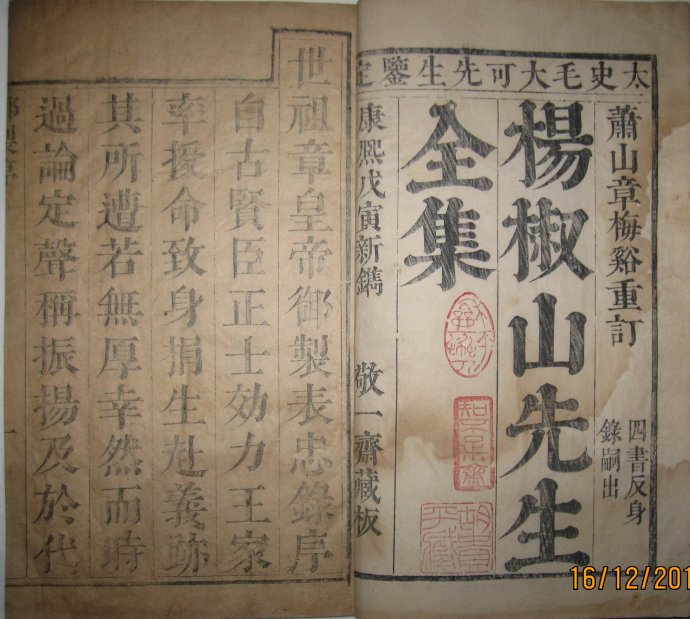 太史毛大可先生鑒定
蕭山章梅谿重訂
四書反身
錄嗣出
楊椒山先生
全集
康熙戊寅新鐫
敬一齋藏板
世祖章皇帝御製表忠錄序
自古賢臣正士効力王家
率授命致身捐生赴義跡
其所遭若無厚幸然而時
過論定聲稱振揚及於代
16/12/201